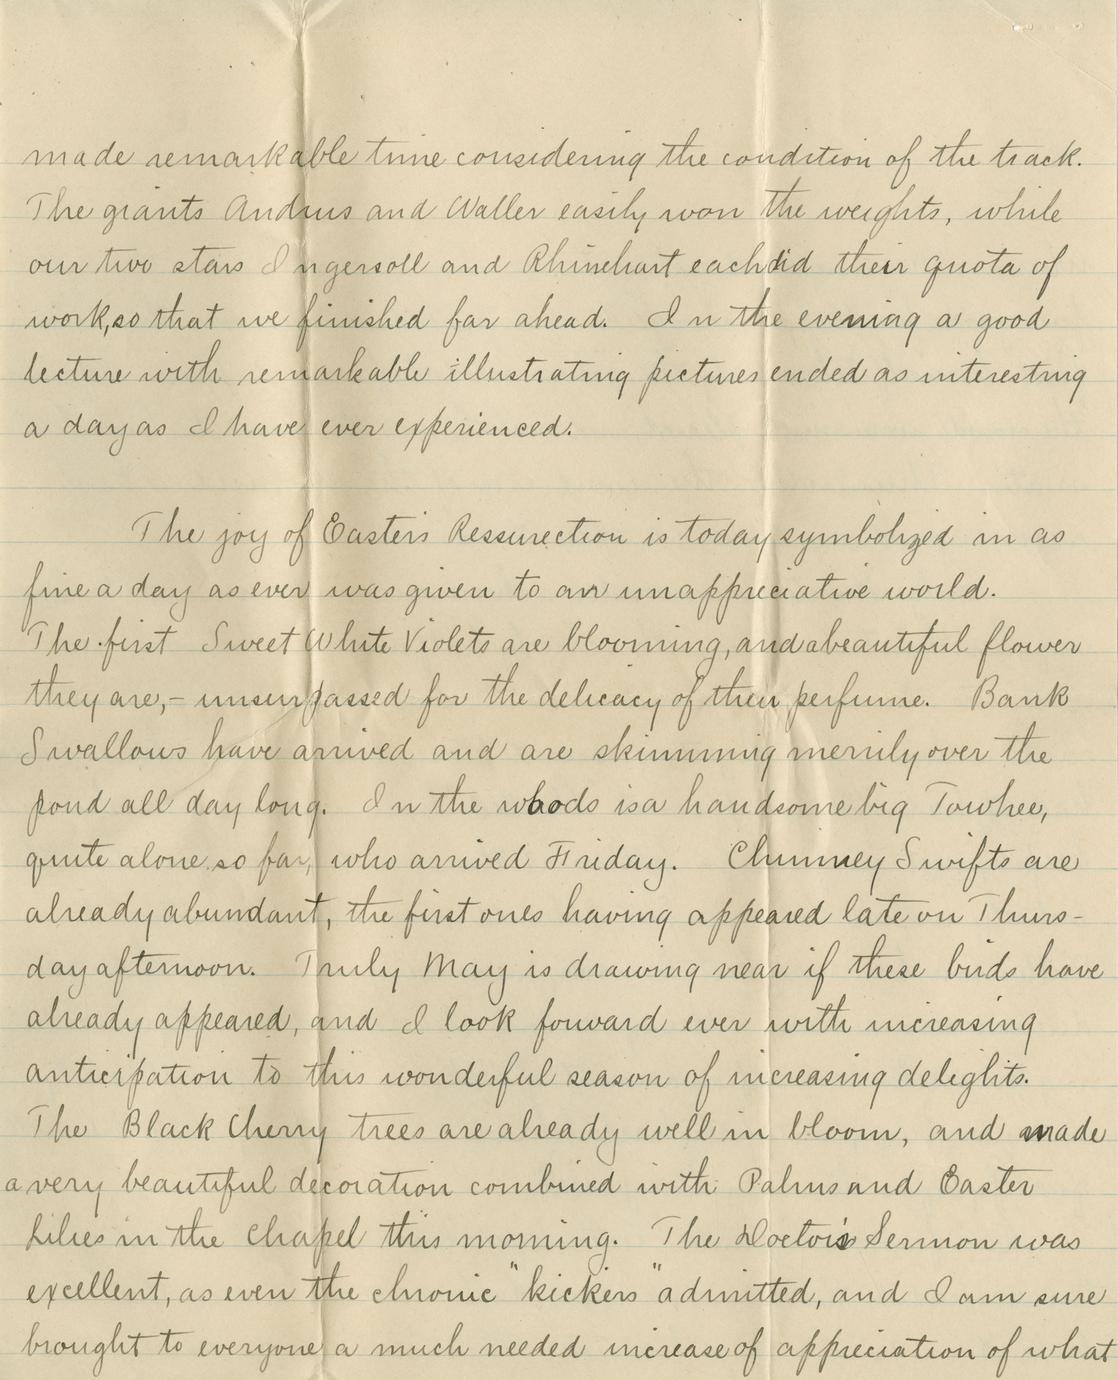 made remarkable time considering the condition of the track.
The giants Andrus and Waller easily won the weights, while
our two stars Ingersoll and Rhinehart each did their quota of
work, so that we finished far ahead. In the evening a good
lecture with remarkable illustrating pictures ended as interesting
a day as I have ever experienced.
The joy of Easter's Ressurection is today symbolized in as
fine a day as ever was given to an unappreciative world.
The first Sweet White Violets are blooming, and a beautiful flower
they are, - unsurpassed for the delicacy of their perfume. Bank
Swallows have arrived and are skimming merrily over the
pond all day long. In the woods is a handsome big Towhee,
quite alone so far, who arrived Friday. Chimney Swifts are
already abundant, the first ones having appeared late on Thurs-
day afternoon. Truly May is drawing near if these birds have
already appeared, and I look forward ever with increasing
anticipation to this wonderful season of increasing delights.
The Black Cherry trees are already well in bloom, and made
a very beautiful decoration combined with Palms and Easter
Lilies in the Chapel this morning. The Doctor's Sermon was
excellent, as even the chronic "kickers" admitted, and I am sure
brought to everyone a much needed increase of appreciation of what